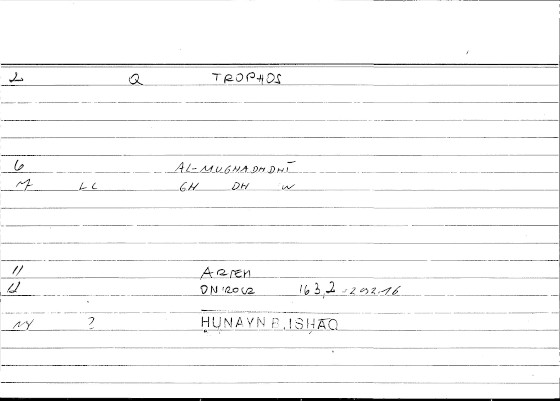 2 Q TROPHOS
6 AL-MUGHADHDHĪ
M LL GH DH W
11 ARTEN
163,2-202,16
? HUNAYN B. ISHAQ